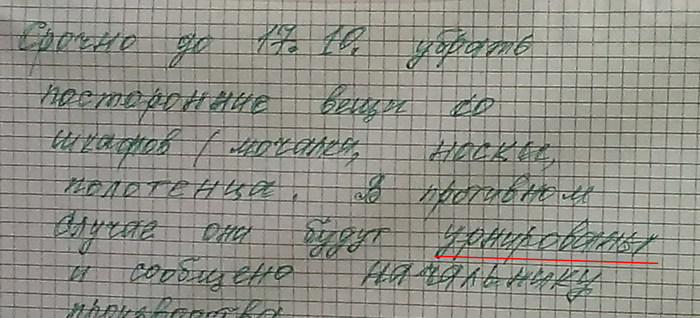 Срочно до 17.10. убрать
посторонние вещи со
шкафов (мочалки, носки,
полотенца. В противном
случае они будут урнированны
и сообщено начальнику
производства